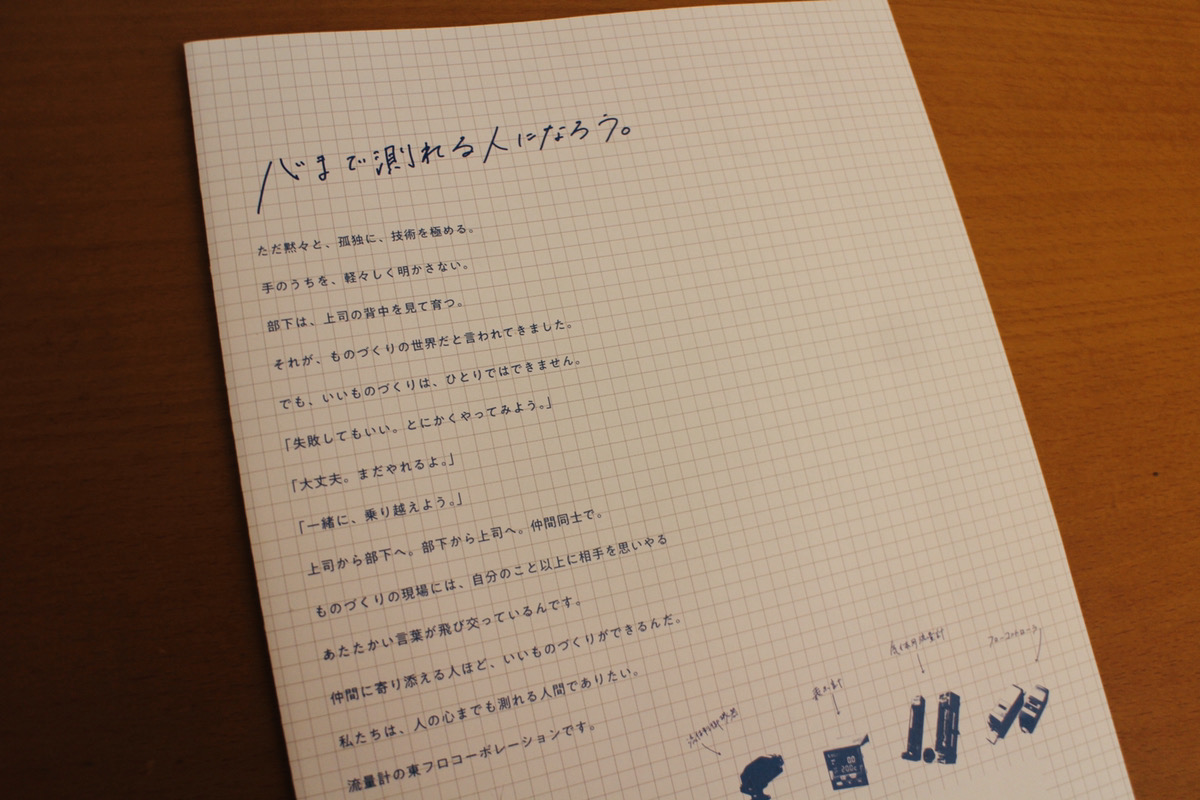 心まで測れる人になろう。
ただ黙々と、孤独に、技術を極める。
手のうちを、軽々しく明かさない。
部下は、上司の背中を見て育つ。
それが、ものづくりの世界だと言われてきました。
でも、いいものづくりは、ひとりではできません。
「失敗してもいい。とにかくやってみよう。」
「大丈夫。まだやれるよ。」
「一緒に、乗り越えよう。」
上司から部下へ。部下から上司へ。仲間同士で。
ものづくりの現場には、自分のこと以上に相手を思いやる
あたたかい言葉が飛び交っているんです。
仲間に寄り添える人ほど、いいものづくりができるんだ。
私たちは、人の心までも測れる人間でありたい。
流量計の東フロコーポレーションです。